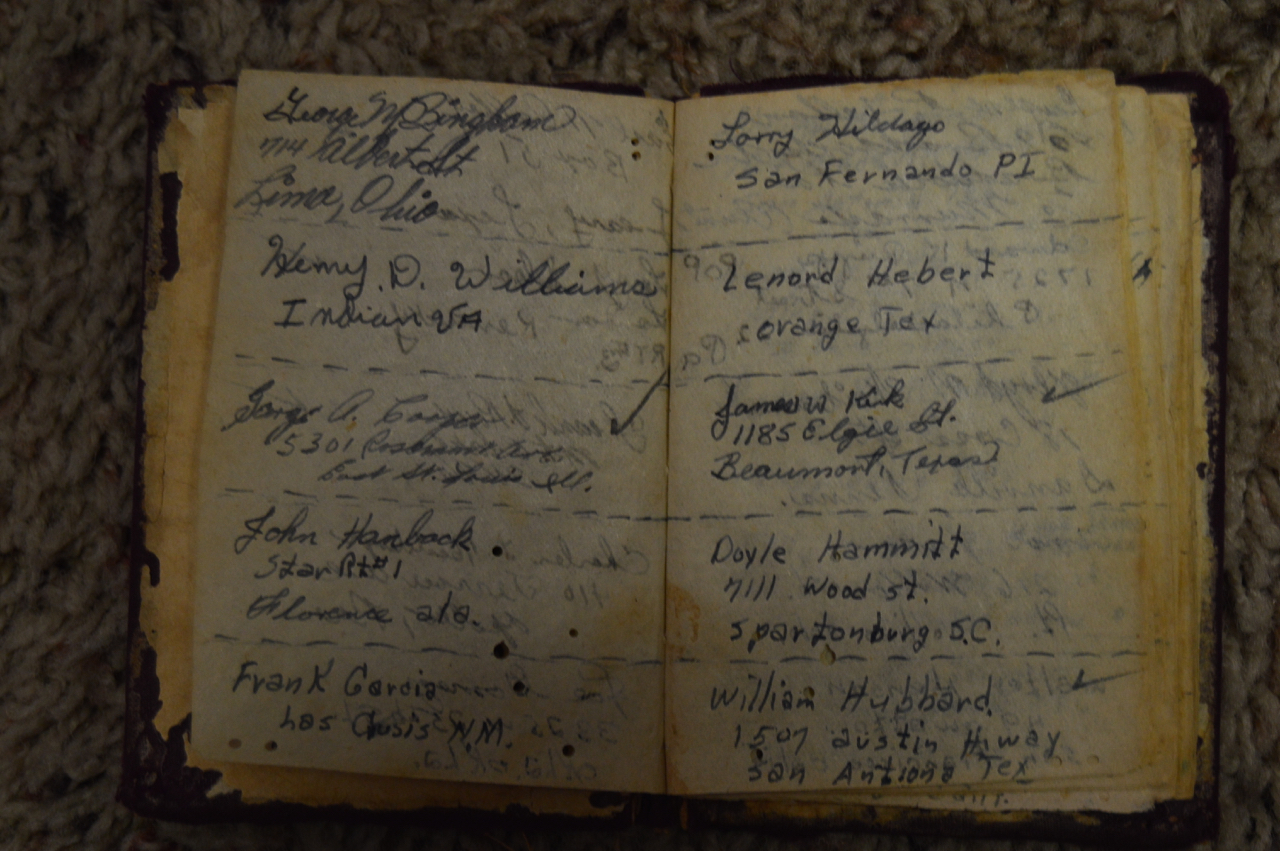 George W Bingham
714 Albert St
Lima, Ohio
Henry. D. Williams
Indian VA
George A. Cooper
5301
East St. Louis Ill.
John Hanback
Star Rt #1
Florence ala.
Frank Garcia
Las Crusis N.M.
Lorry Hildago
San Fernando PI
Lenord Hebert
Orange Tex
James W Kirk
1185 Elgie St.
Beaumont, Texas
Doyle Hammitt
7111 Wood st.
Spartonburg S.C.
William Hubbard.
1507 austin Hiway
San Antiona Tex